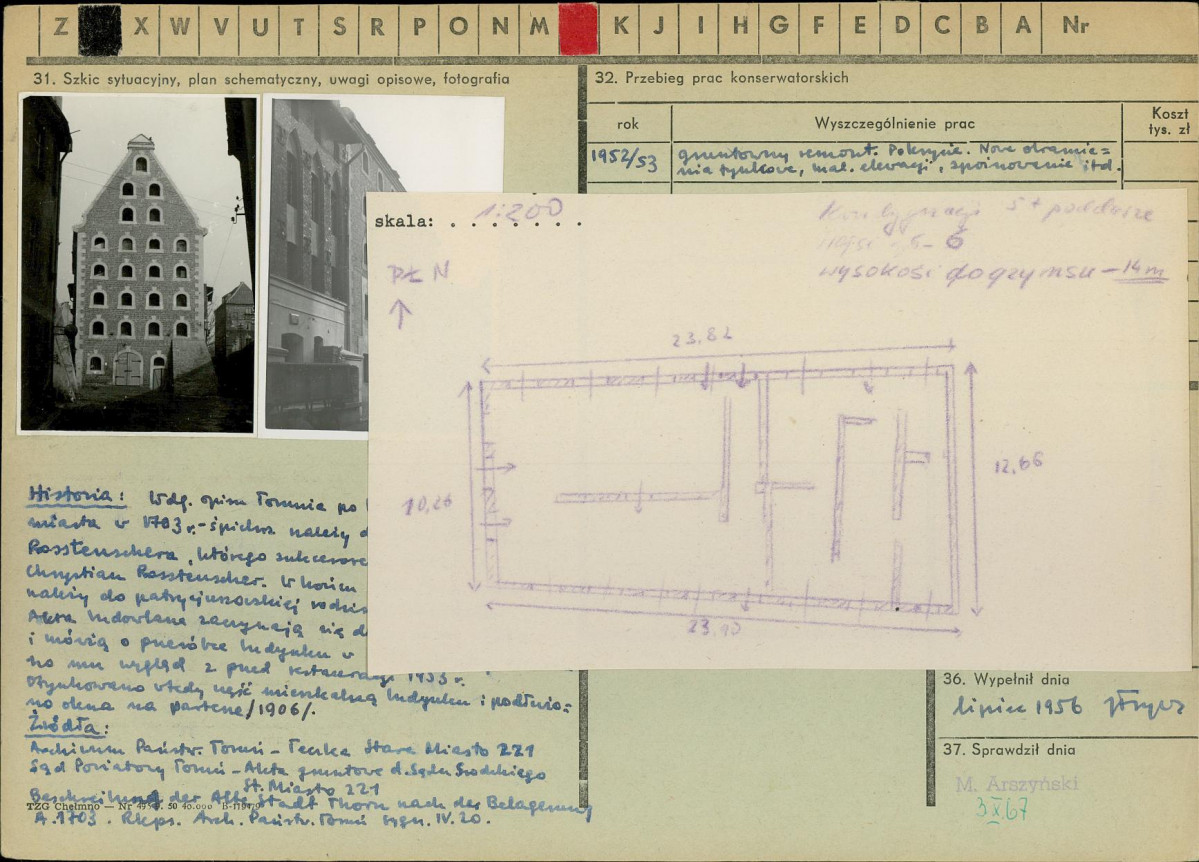 Z X W V U T S R P O N M K J I H G F E D C B A Nr
31. Szkic sytuacyjny, plan schematyczny, uwagi opisowe, fotografia
32. Przebieg prac konserwatorskich
rok
Wyszczególnienie prac
Koszt
tys. zł
1952/53
gruntowny remont. Pokrycie. Nowe obramie=
nia tynkowe, mal. elewacji, spoinowanie itd.
skala: . . . . . . . .
1:200
Kondygnacji 5 + poddasze
wysokość do gzymsu – 14 m
PŁN
23,82
10,26
12,66
23,90
Historia: Wdg. opisu Torunia po
miasta w 1703 r. - śpichrz należy
Rosstenschera, którego
Chrystian Rosstenscher. W końcu
należy do patrycjuszowskiej
Akta budowlane zaczynają się
i mówią o przeróbce budynku w
no mu wygląd z przed restauracji 1953 r.
Otynkowano wtedy część mieszkalną budynku i podłużo=
no okna na parterze /1906/.
Źródła:
Archiwum Państw. Toruń - Teczka Stare Miasto 221
Sąd Powiatowy Toruń - Akta gruntowe d. Sądu Grodzkiego
St. Miasto 221
Beschreibung der Alts Stadt Thorn nach der Belagerung
A. 1703. Rkps. Arch. Państw. Toruń sygn. IV. 20.
TZG Chełmno — Nr
36. Wypełnił dnia
lipiec 1956
37. Sprawdził dnia
M. Arszyński
3 X 67